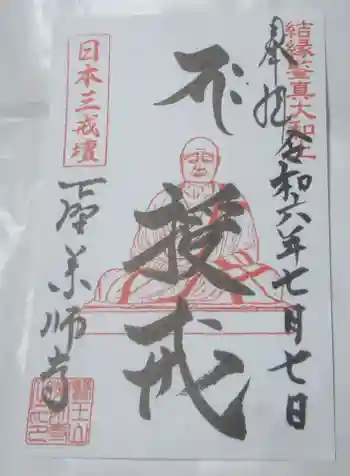 結縁鑒真大和上
奉拝 令和六年七月七日
不
授
戒
日本三戒壇
下野薬師寺